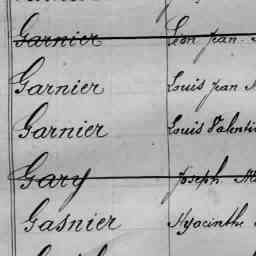 Garnier Léon Jean
Garnier Louis Jean
Garnier Louis Valentin
Gary Joseph
Gasnier Hyacinthe